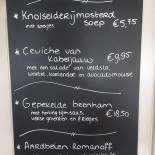 * Knolselderijmosterd
soep €5,75
met korstjes
* Ceviche van
kabeljauw €9,95
met een salade van veldsla,
wortel, koriander in avocadomousse
* Gepekelde beenham
met honing tijmsaus, €18,50
verse groenten en frietjes
* Aardbeien Romanoff